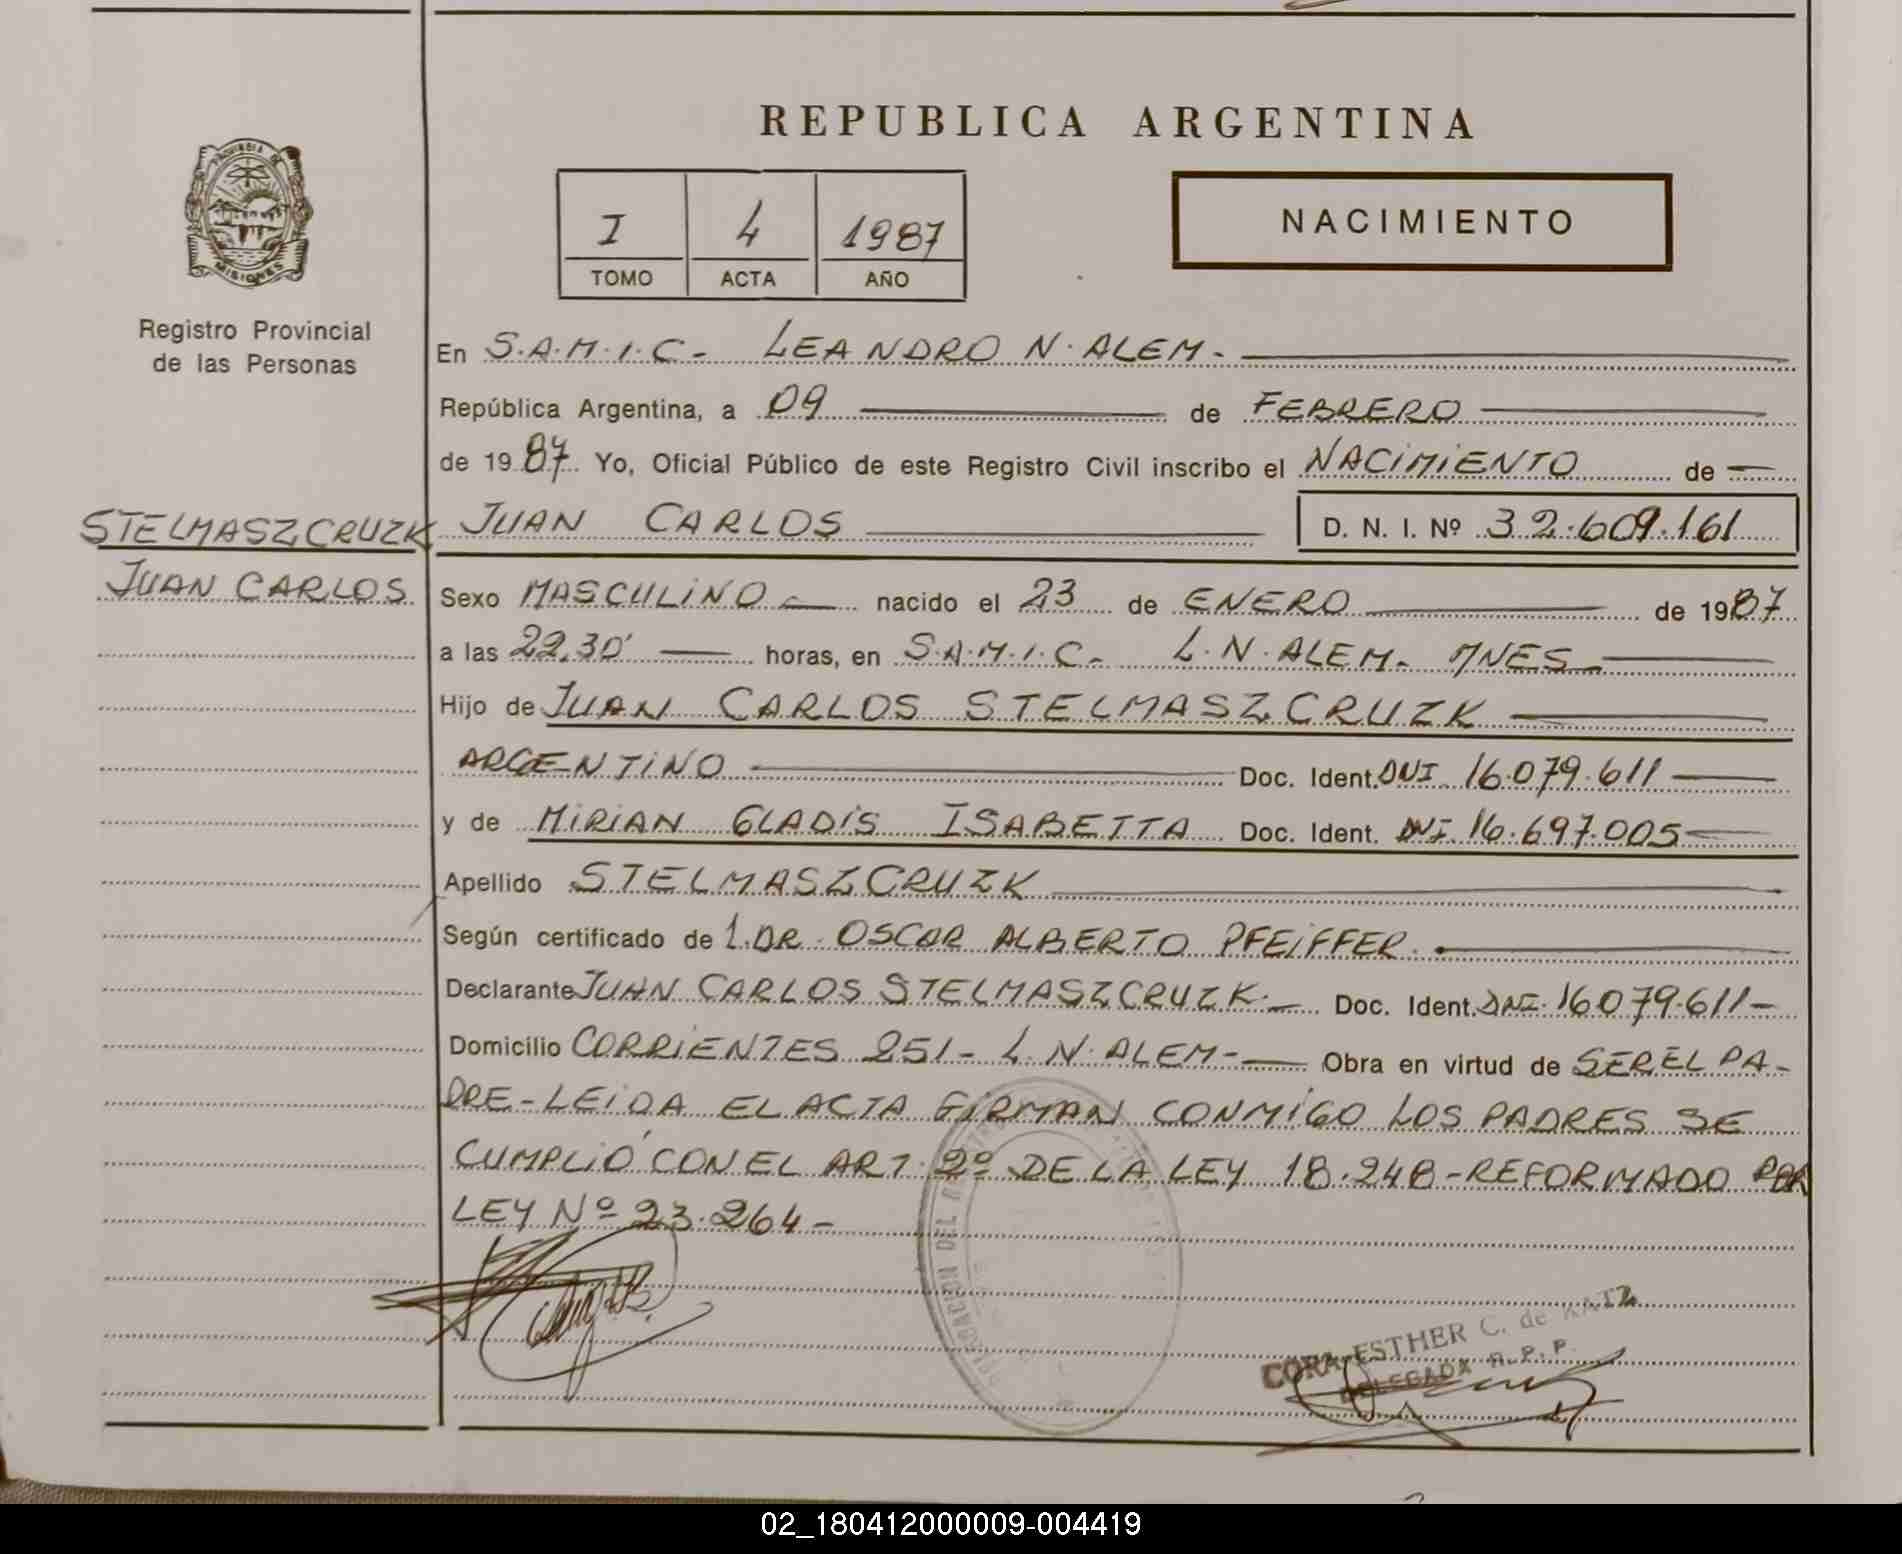 REPUBLICA ARGENTINA
PROVINCIA DE
MISIONES
Registro Provincial
de las Personas
I 4 1987
TOMO ACTA AÑO
NACIMIENTO
En S.A.M.I.C- LEANDRO N. ALEM-
República Argentina, a 09 de FEBRERO
de 1987. Yo, Oficial Público de este Registro Civil inscribo el NACIMIENTO de
STELMASZCRUZK JUAN CARLOS D. N. I. Nº 32.609.161
JUAN CARLOS Sexo MASCULINO nacido el 23 de ENERO de 1987
a las 22,30' horas, en S.A.M.I.C- L.N. ALEM- MNES-
Hijo de JUAN CARLOS STELMASZCRUZK
ARGENTINO Doc. Ident. DNI 16.079.611
y de MIRIAN GLADIS ISABETTA Doc. Ident. DNI. 16.697.005
Apellido STELMASZCRUZK
Según certificado de 1. DR. OSCAR ALBERTO PFEIFFER.
Declarante JUAN CARLOS STELMASZCRUZK.- Doc. Ident. DNI. 16079.611-
Domicilio CORRIENTES 251- L.N. ALEM- Obra en virtud de SER EL PA-
DRE-LEIDA EL ACTA FIRMAN CONMIGO LOS PADRES SE
CUMPLIÓ CON EL ART. 2º DE LA LEY 18.248-REFORMADO POR
LEY Nº 23.264-
CORA ESTHER C. de KATZ
DELEGADA R.P.P.
02_180412000009-004419